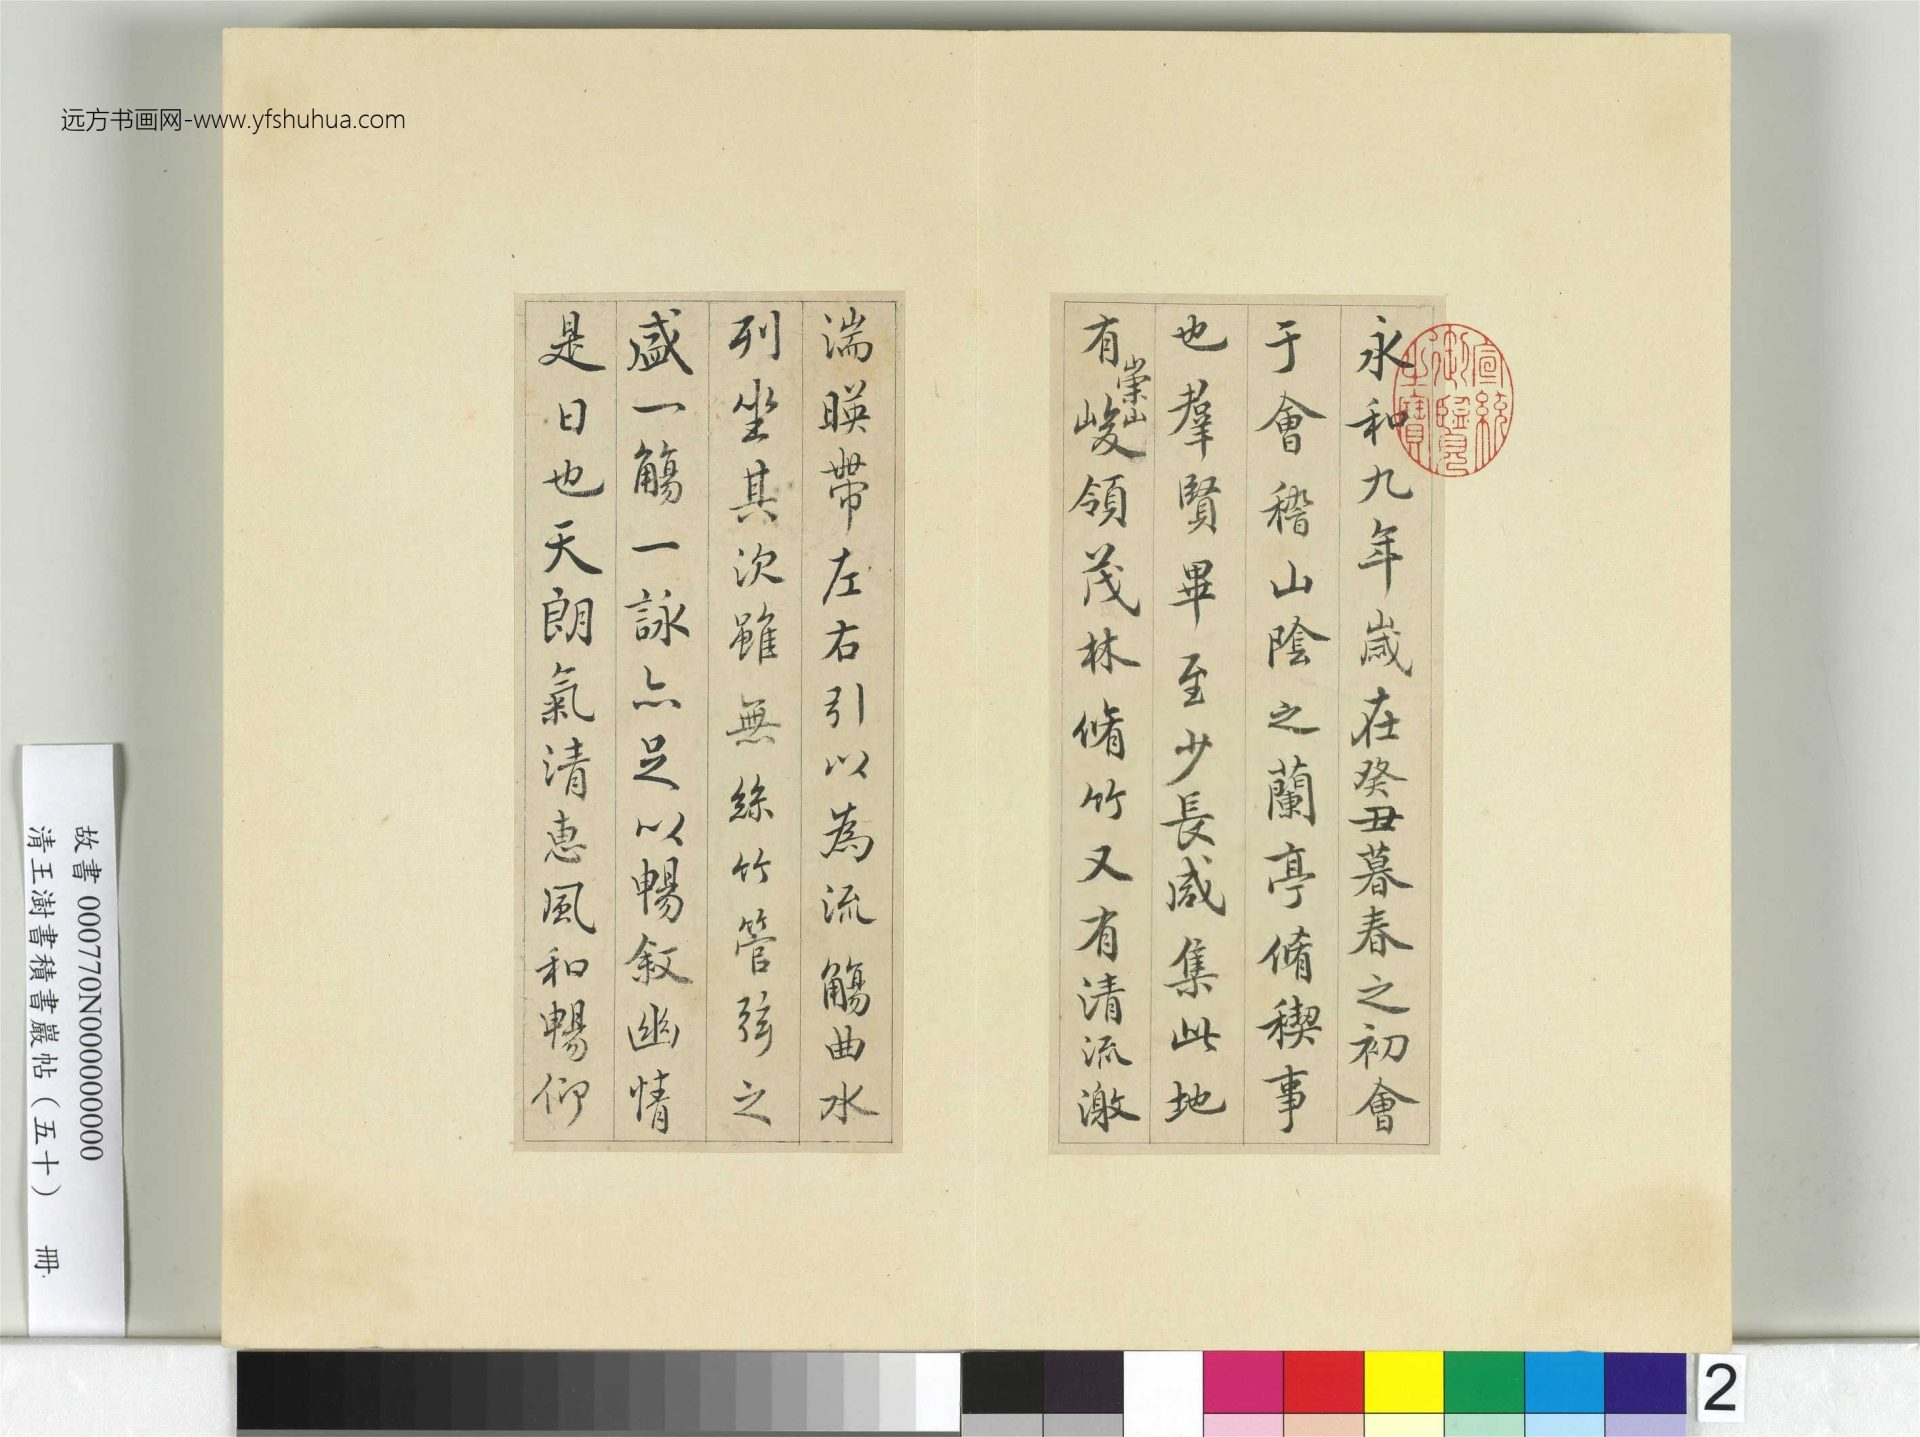 远方书画网-www.yfshuhua.com
永和九年歲在癸丑暮春之初會
于會稽山陰之蘭亭脩稧事
也羣賢畢至少長咸集此地
有崇山峻領茂林脩竹又有清流激
湍暎帶左右引以為流觴曲水
列坐其次雖無絲竹管弦之
盛一觴一詠亦足以暢敘幽情
是日也天朗氣清惠風和暢仰
宣統御覽之寶
故書 000770N000000000
清王澍書積書巖帖(五十) 冊
2